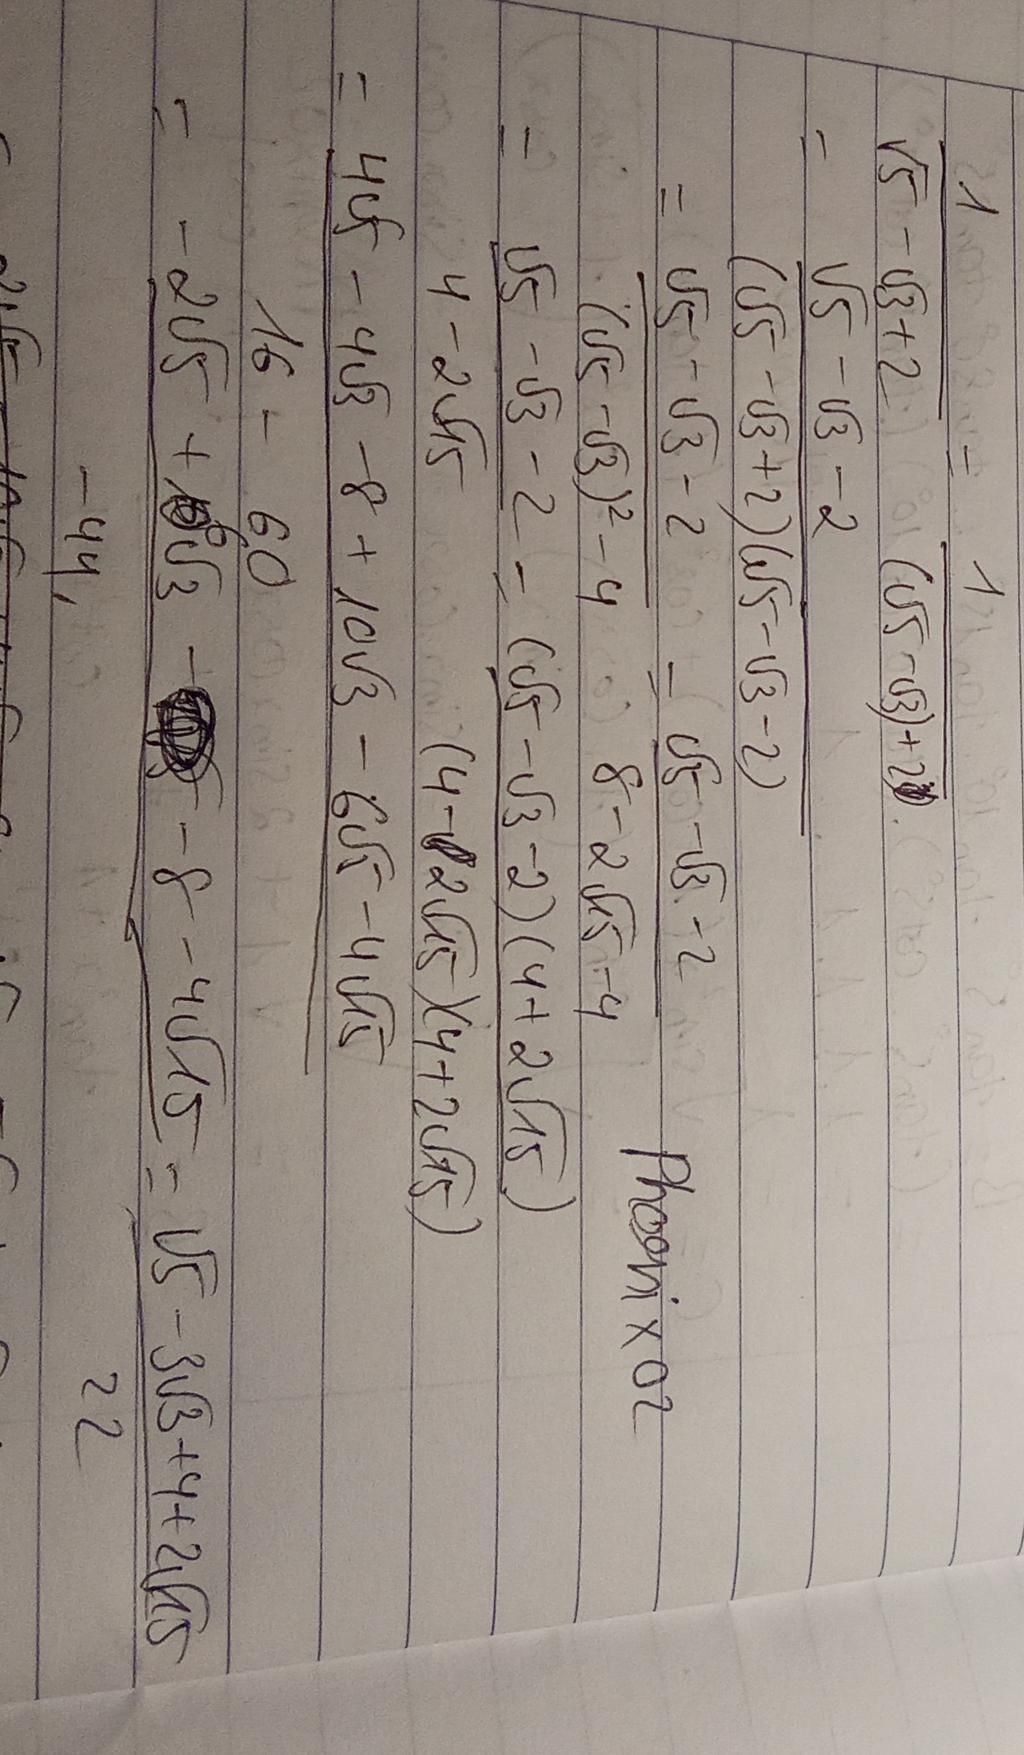 1 / (√5 - √3 + 2) = 1 / ((√5 - √3) + 2)
= (√5 - √3 - 2) / ((√5 - √3 + 2)(√5 - √3 - 2))
= (√5 - √3 - 2) / ((√5 - √3)² - 4) = (√5 - √3 - 2) / (8 - 2√15 - 4)
Phoenix02
= (√5 - √3 - 2) / (4 - 2√15) = (√5 - √3 - 2)(4 + 2√15) / ((4 - 2√15)(4 + 2√15))
= (4√5 - 4√3 - 8 + 10√3 - 6√5 - 4√15) / (16 - 60)
= (-2√5 + 6√3 - 8 - 4√15) / -44, = (√5 - 3√3 + 4 + 2√15) / 22